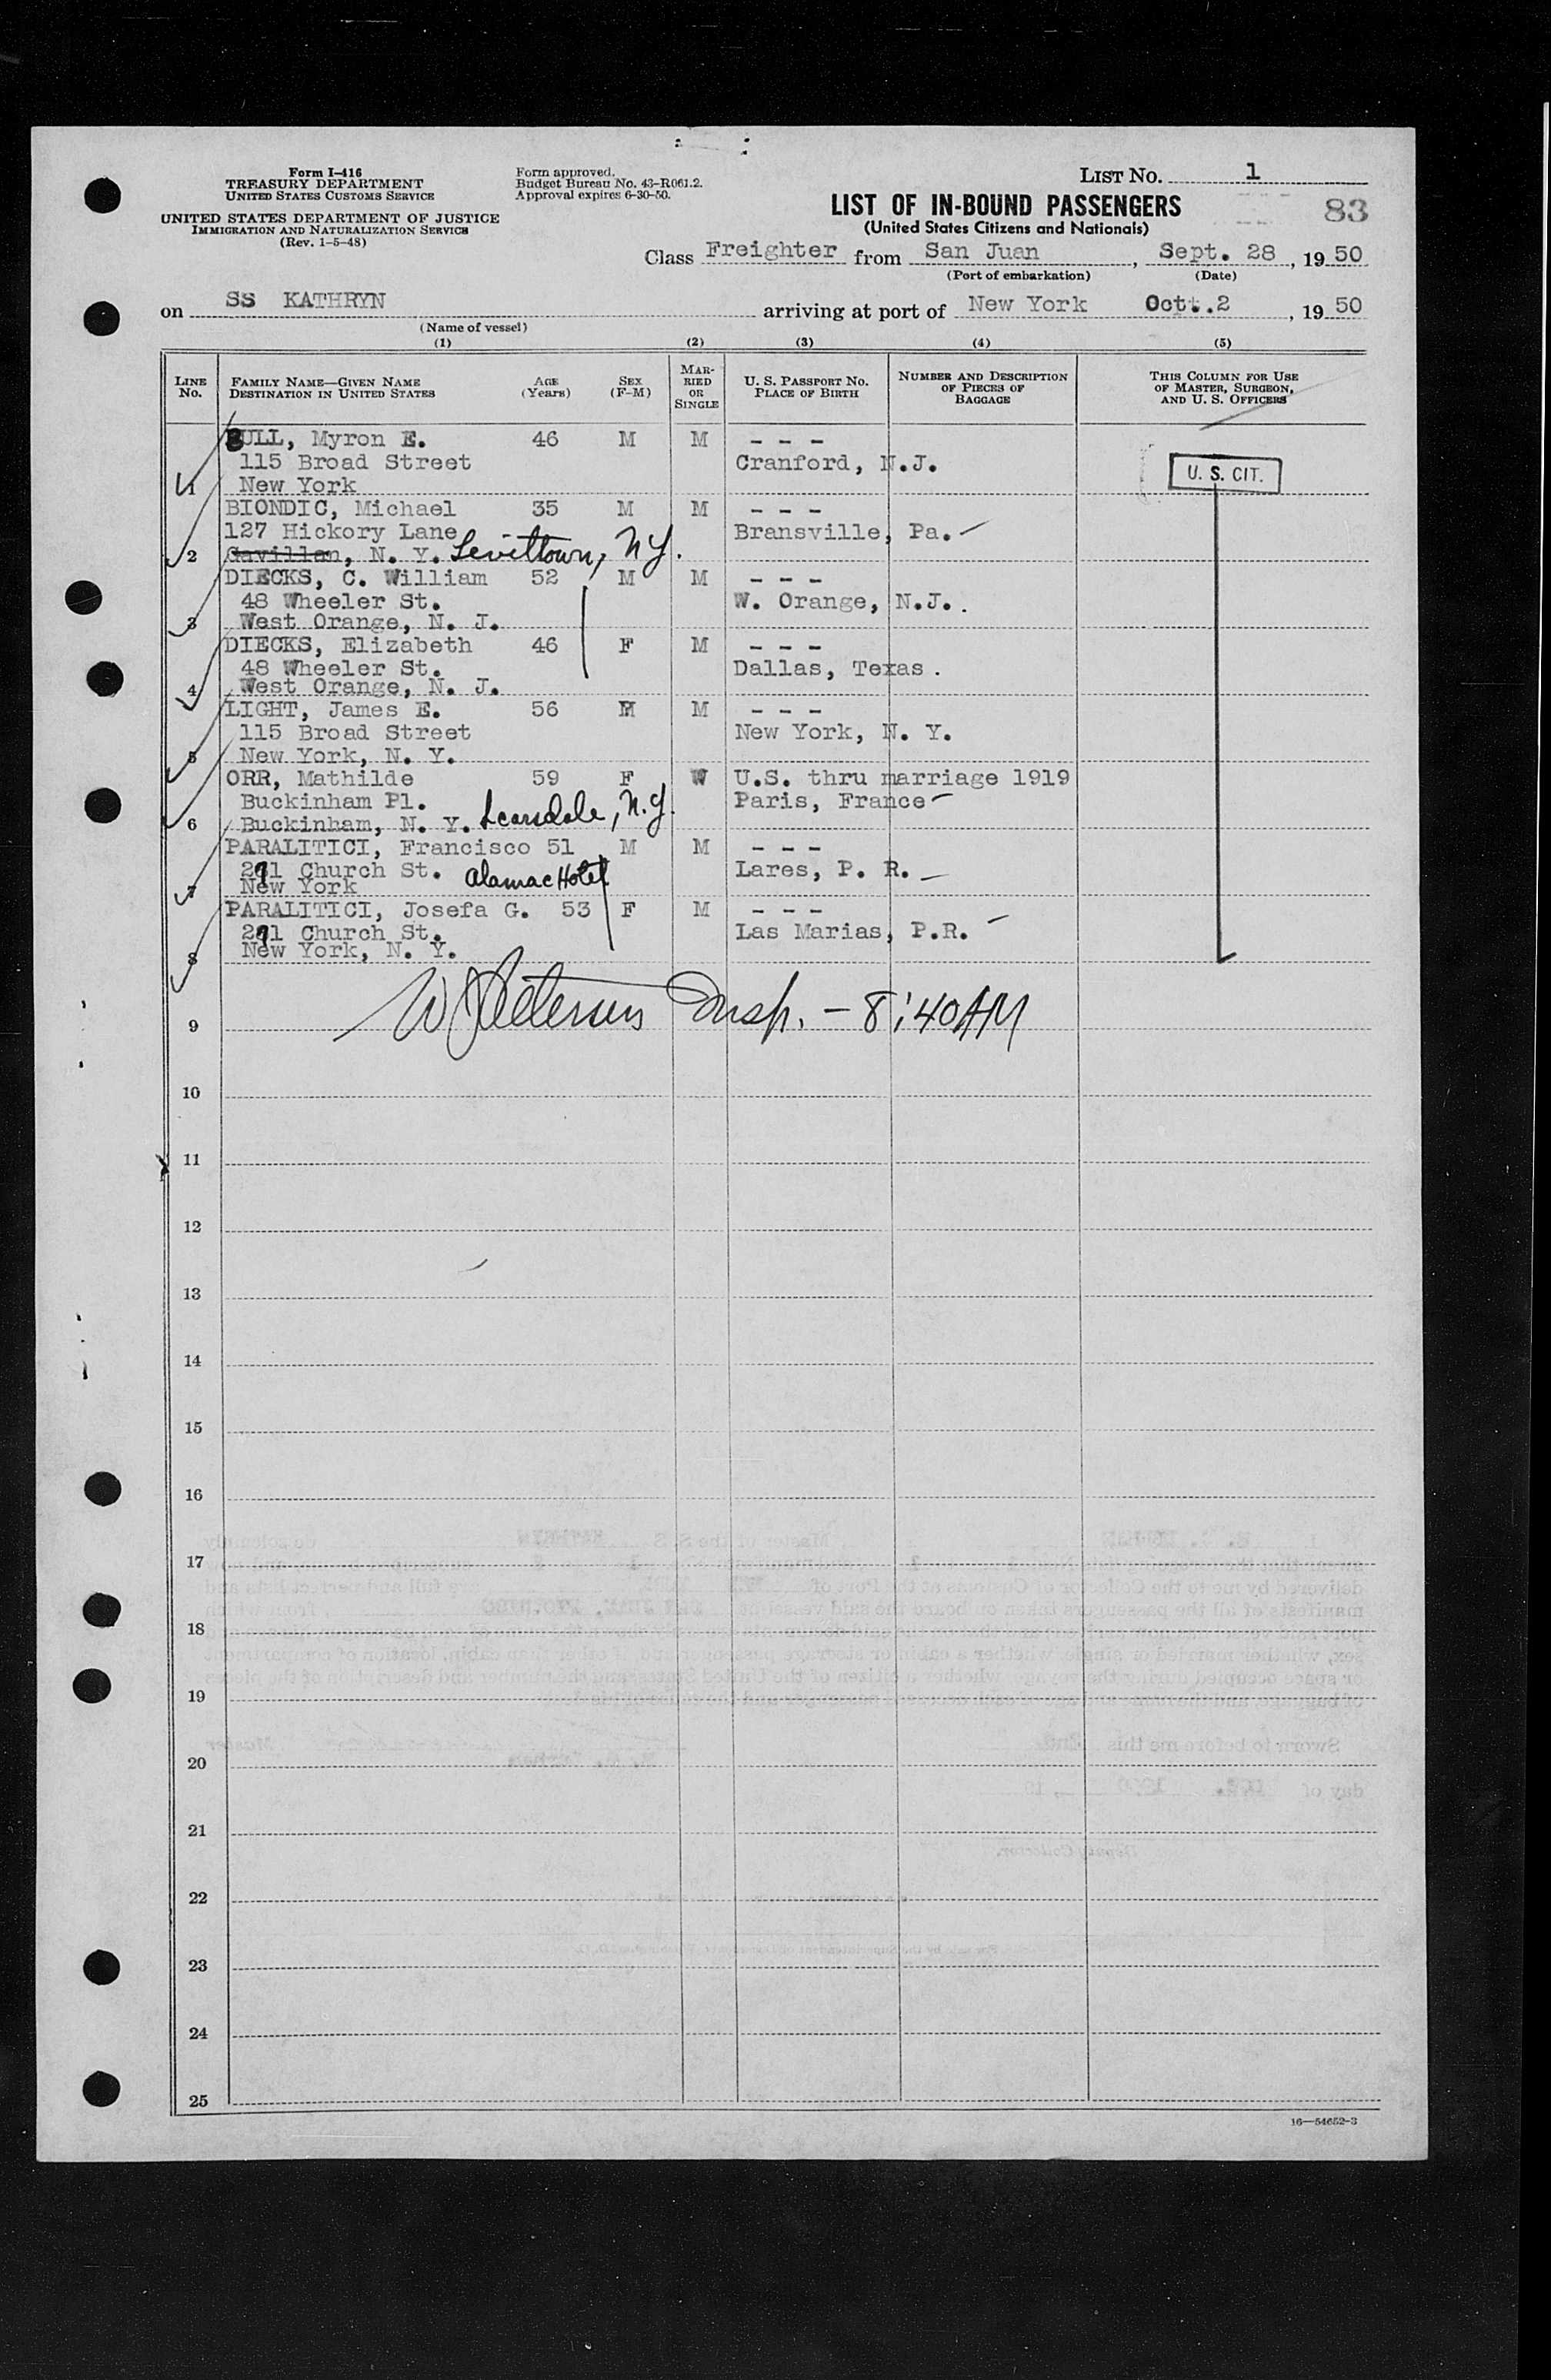 Form I-416
TREASURY DEPARTMENT
UNITED STATES CUSTOMS SERVICE
UNITED STATES DEPARTMENT OF JUSTICE
IMMIGRATION AND NATURALIZATION SERVICE
(Rev. 1-5-48)
Form approved.
Budget Bureau No. 43-R061.2.
Approval expires 6-30-50.
LIST No. 1
LIST OF IN-BOUND PASSENGERS
83
(United States Citizens and Nationals)
Class Freighter from San Juan, Sept. 28, 19 50
(Port of embarkation) (Date)
on SS KATHRYN arriving at port of New York Oct. 2, 19 50
(Name of vessel)
(1) (2) (3) (4) (5)
LINE No.
FAMILY NAME—GIVEN NAME
DESTINATION IN UNITED STATES
AGE (Years)
SEX (F-M)
MARRIED OR SINGLE
U. S. PASSPORT NO.
PLACE OF BIRTH
NUMBER AND DESCRIPTION OF PIECES OF BAGGAGE
THIS COLUMN FOR USE OF MASTER, SURGEON, AND U. S. OFFICERS
BULL, Myron E. 46 M M - - -
115 Broad Street Cranford, N.J.
1 New York
U. S. CIT.
BIONDIC, Michael 35 M M - - -
127 Hickory Lane Bransville, Pa.
2 Gavillan, N. Y. Levittown, N.Y.
DIECKS, C. William 52 M M - - -
48 Wheeler St. W. Orange, N.J.
3 West Orange, N. J.
DIECKS, Elizabeth 46 F M - - -
48 Wheeler St. Dallas, Texas.
4 West Orange, N. J.
LIGHT, James E. 56 M M - - -
115 Broad Street New York, N. Y.
5 New York, N. Y.
ORR, Mathilde 59 F W U.S. thru marriage 1919
Buckinham Pl. Paris, France
6 Buckinham, N. Y. Scarsdale, N.Y.
PARALITICI, Francisco 51 M M - - -
291 Church St. Alamac Hotel Lares, P. R.
7 New York
PARALITICI, Josefa G. 53 F M - - -
291 Church St. Las Marias, P.R.
8 New York, N. Y.
W Petersen Insp. - 8:40AM
9
10
11
12
13
14
15
16
17
18
19
20
21
22
23
24
25
16—54652-3